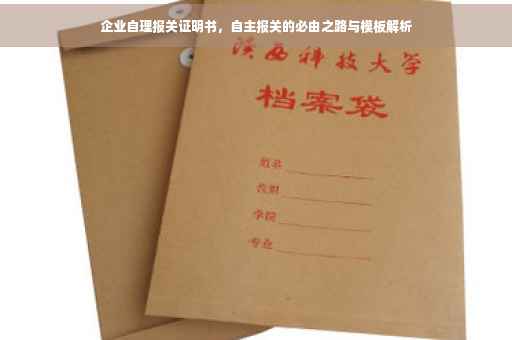 企业自理报关证明书，自主报关的必由之路与模板解析
陕西科技大学
档案袋
姓名
学院
专业